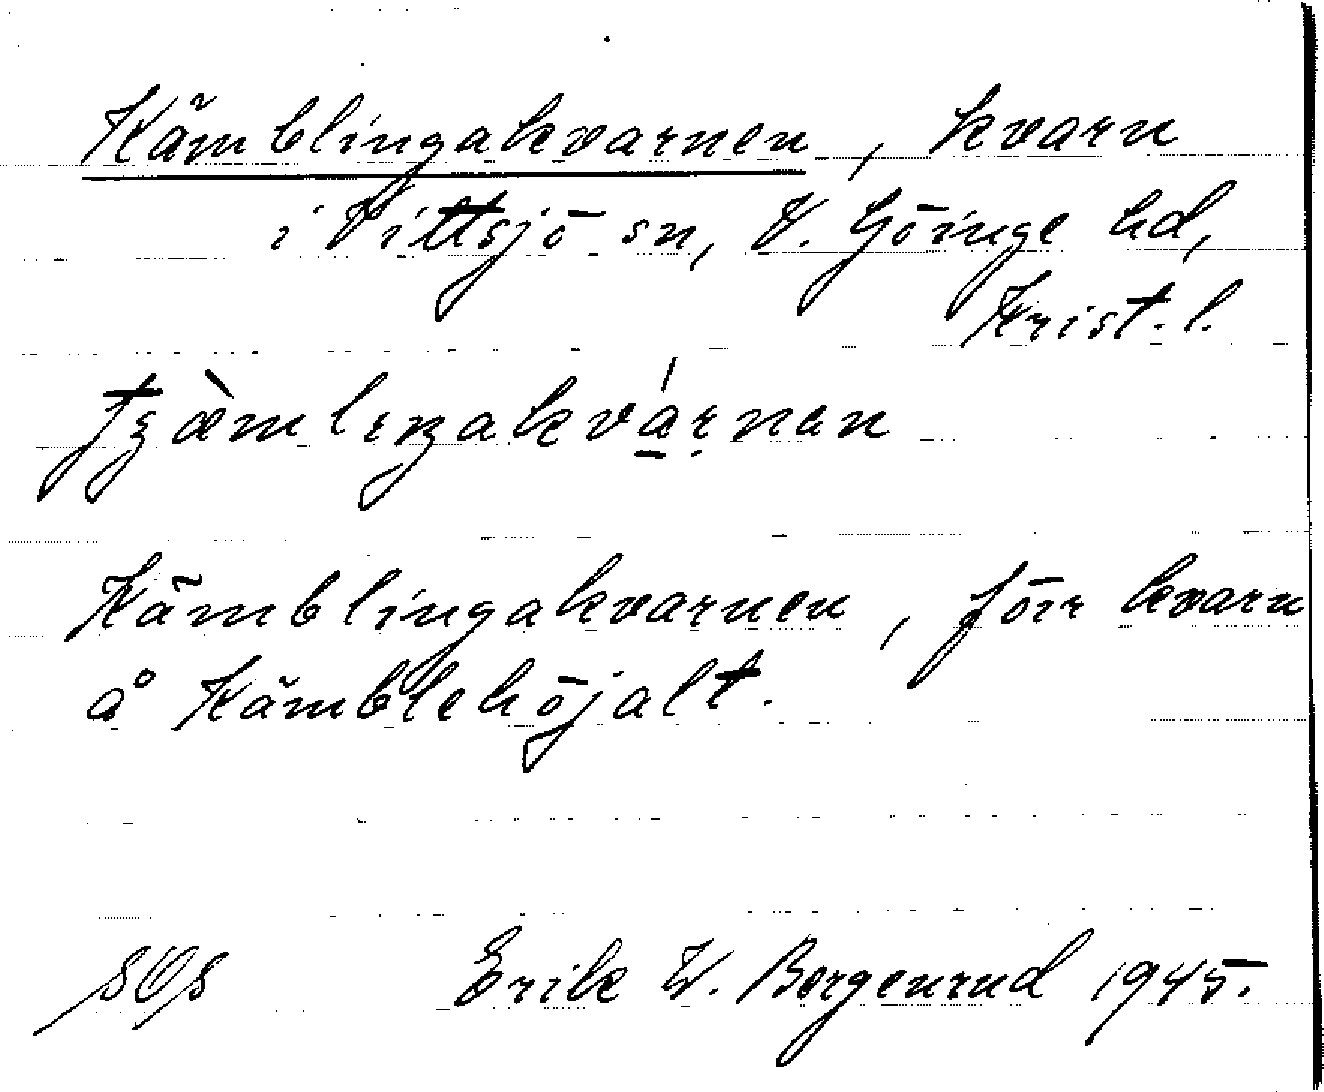 Kämblingakvarnen, kvarn
i Vittsjö sn, V. Göinge hd,
Krist. l.
Kämblingakvarnen, förr kvarn
å Kämblehöjalt.
Erik W. Borgenrud 1945.